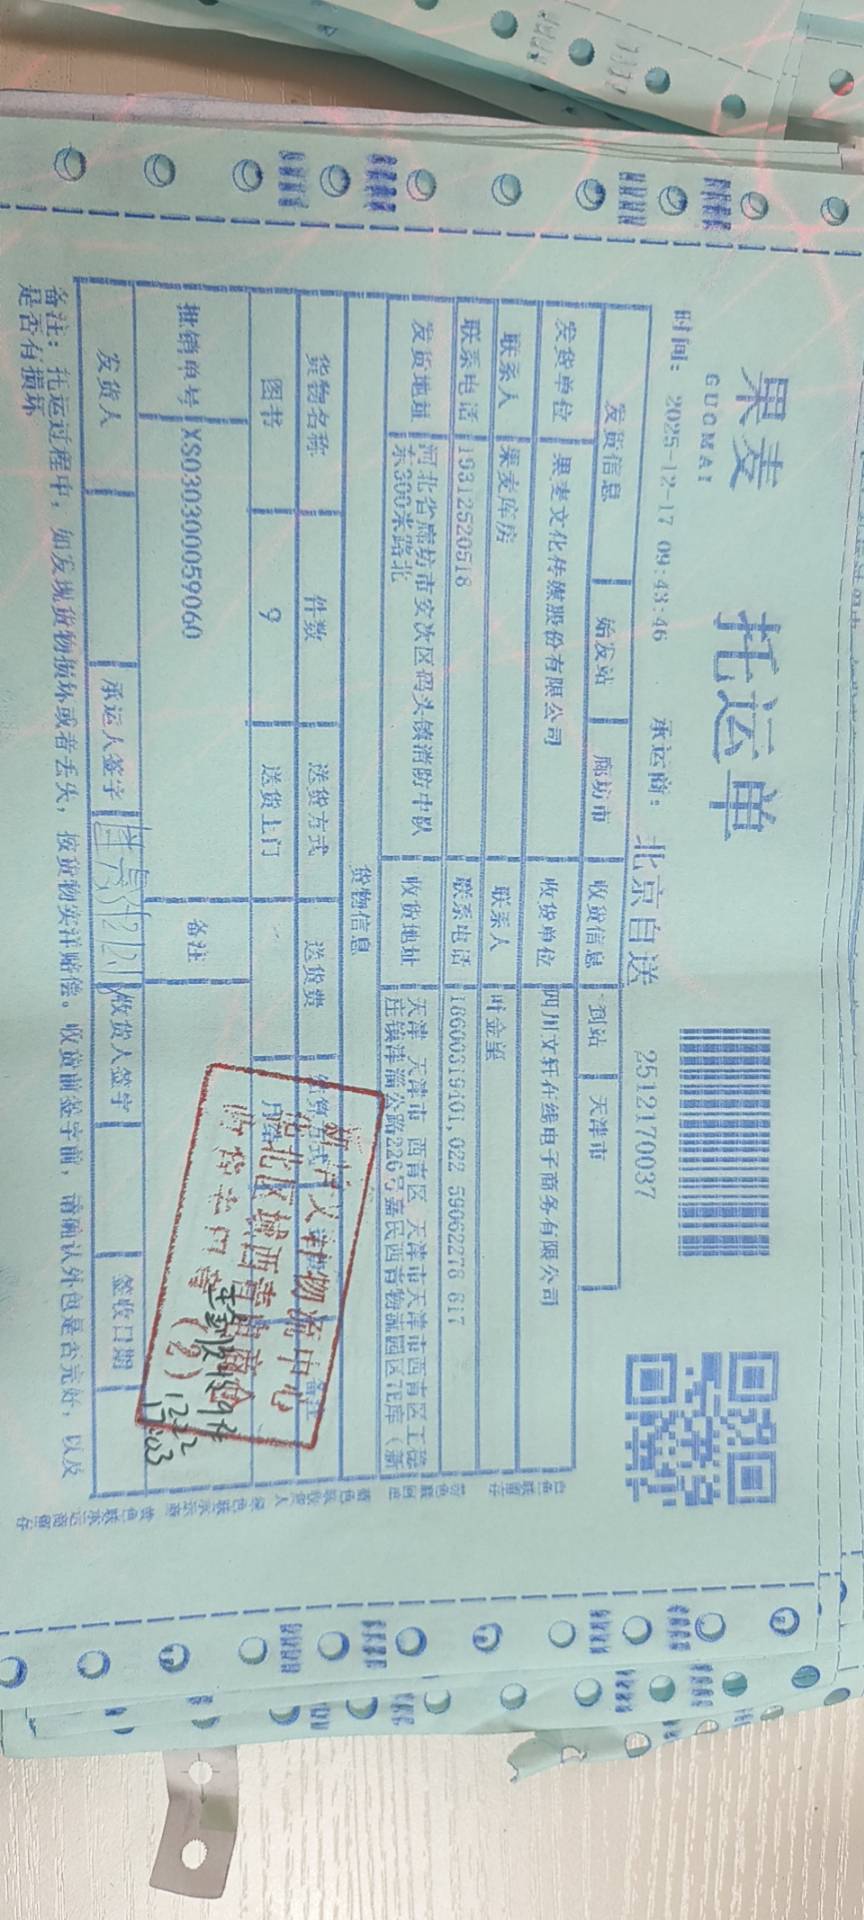 果麦
GUOMAI
托运单
时间: 2025-12-17 09:43:46 承运商: 北京自送 2512170037
发货信息 始发站 廊坊市 收货信息 到站 天津市
发货单位 果麦文化传媒股份有限公司 收货单位 四川文轩在线电子商务有限公司
联系人 果麦库房 联系人 叶金堂
联系电话 19312520518 联系电话
发货地址 河北省廊坊市安次区码头镇消防中队
东300米路北
收货地址 天津 天津市 西青区 天津市天津市西青区王稳
庄镇津淄公路226号嘉民西青物流园区7E库（新
货物信息
货物名称 件数 送货方式 送货费 结算方式 备注
图书 9 送货上门 月结
批销单号 XS030300059060 备注
文轩物流中心
北区域西青
(2)
实收9件
12.22
发货人 承运人签字 收货人签字 签收日期
备注: 托运过程中, 如发现货物损坏或者丢失, 按货物实洋赔偿。收货前签字前, 请确认外包是否完好, 以及
是否有损坏